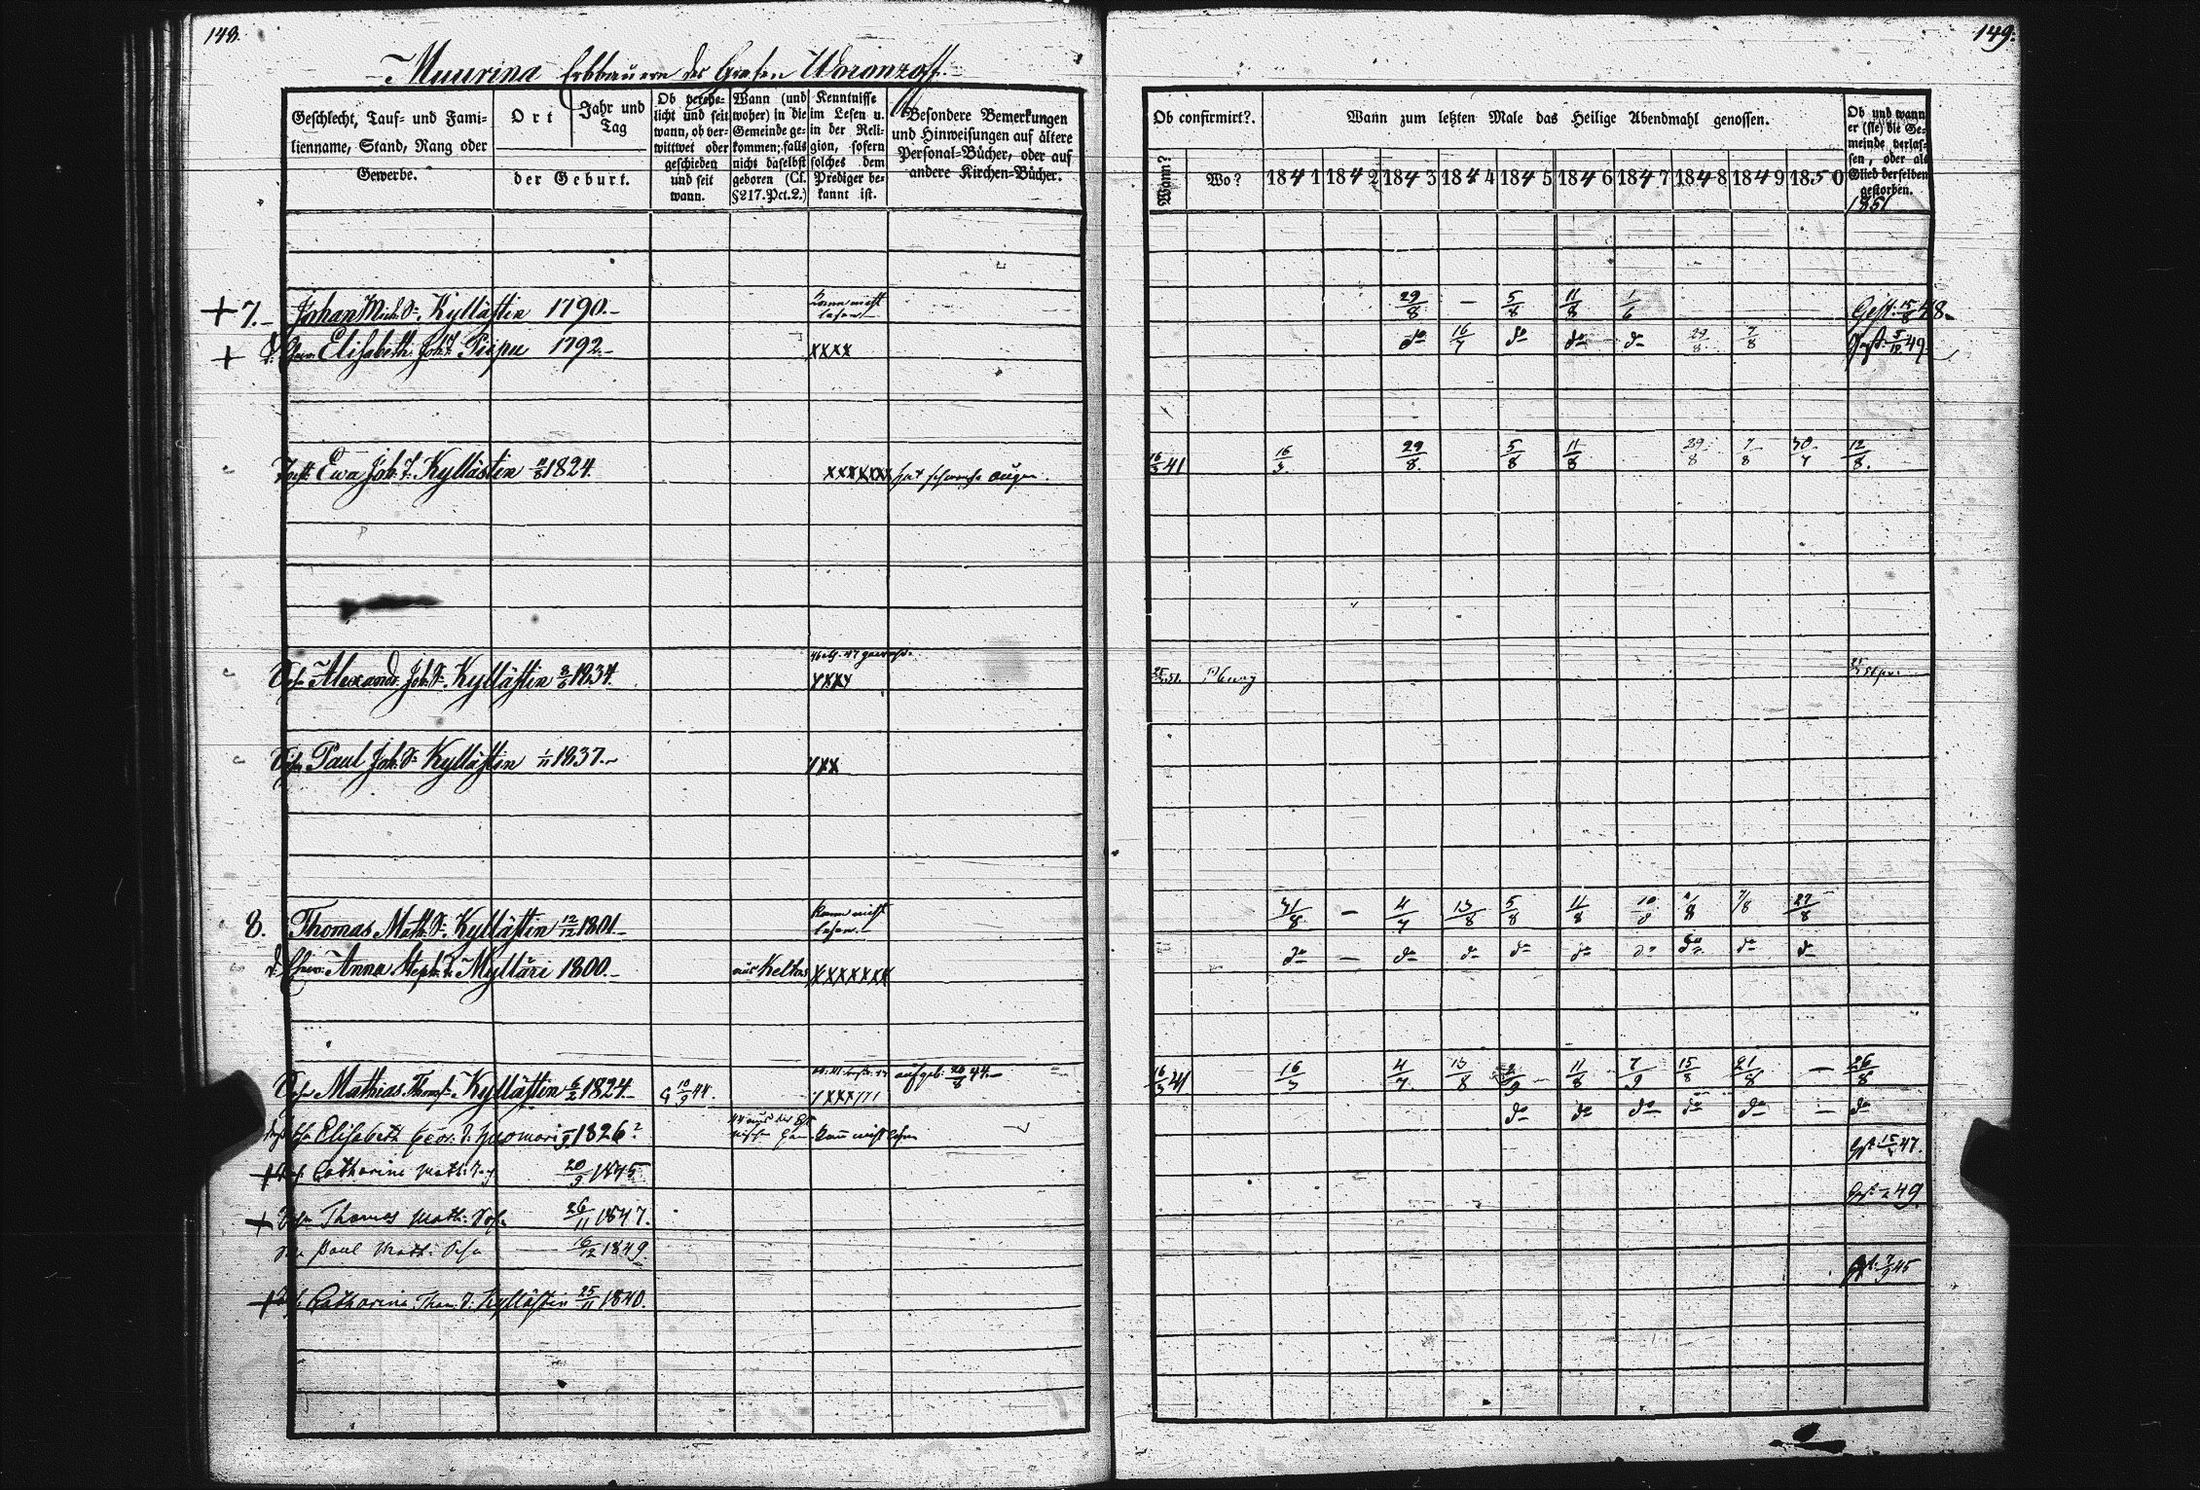 148.
Muurina Erbbauern des Grafen Woronzoff.
Geschlecht, Tauf- und Fami-
lienname, Stand, Rang oder
Gewerbe.
Ort
Jahr und
Tag
der Geburt.
Ob verehe-
licht und seit
wann, ob ver-
wittwet oder
geschieden
und seit
wann.
Wann (und
woher) in die
Gemeinde ge-
kommen; falls
nicht daselbst
geboren (Cf.
§217. Pct. 2.)
Kenntnisse
im Lesen u.
in der Reli-
gion, sofern
solches dem
Prediger be-
kannt ist.
Besondere Bemerkungen
und Hinweisungen auf ältere
Personal-Bücher, oder auf
andere Kirchen-Bücher.
+ 7. Johan Mich. S. Kyllästin 1790. kann nicht lesen
+ d. Ehew. Elisabeth Joh. T. Piipu 1792. xxxx
Ewa Joh. T. Kyllästin 1824. xxxxxxx hat schwache Augen.
Sohn Alexand. Joh. S. Kyllästin 1834. xxxx
Sohn Paul Joh. S. Kyllästin 1/11 1837. xxx
8. Thomas Math. S. Kyllästin 12/12 1801. kann nicht lesen
d. Ehew. Anna Steph. T. Mylläri 1800. aus Keltos xxxxxxx
Sohn Mathias Thoms. Kyllästin 6/2 1824. 10/9 44. aufgeb. 20/8 44.
Elisabeth Geor. T. Huomari 1826? kann nicht lesen
+ Catharina Math. T. 20/9 1845.
+ Sohn Thomas Math. Sohn 26/11 1847.
Paul Math. Sohn 16/12 1849.
+ Catharina Thom. T. Kyllästin 25/11 1840.
149.
Ob confirmirt?
Wann?
Wo?
Wann zum letzten Male das Heilige Abendmahl genossen.
1841 1842 1843 1844 1845 1846 1847 1848 1849 1850
Ob und wann
er (sie) die Ge-
meinde verlas-
sen, oder als
Glied derselben
gestorben.
1851
29/8 — 5/8 11/8 1/6 Gest. 15/8 48.
do 16/7 do do do 29/8 7/8 Gest. 5/12 49.
16/3 41 16/3. 29/8. 5/8 11/8 29/8 7/8 30/7 12/8.
31/8. — 4/7 13/8 5/8 11/8 10/8 7/8 27/8
do — do do do do do do do do
16/3 41 16/3 4/7. 13/8 11/8 7/9 15/8 21/8 — 26/8
do do do do do — do
47.
49.
45